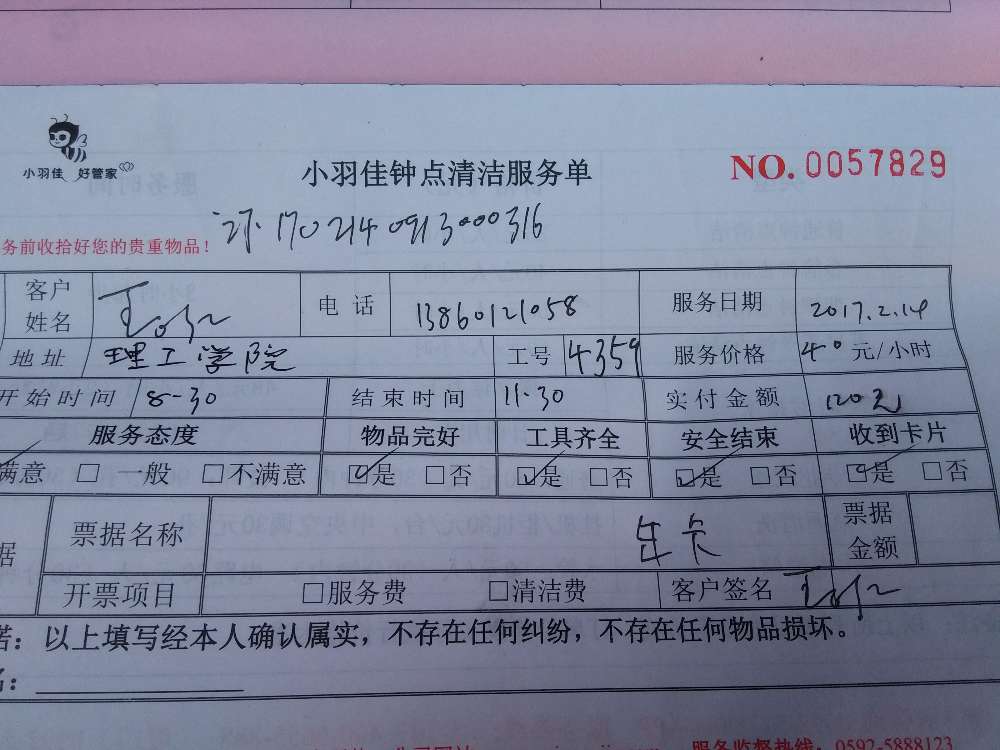 小羽佳 好管家
小羽佳钟点清洁服务单
NO. 0057829
1702140913000316
务前收拾好您的贵重物品!
客户姓名 电话 13860121058 服务日期 2017.2.14
地址 理工学院 工号 4359 服务价格 40元/小时
开始时间 8-30 结束时间 11.30 实付金额 120元
服务态度 物品完好 工具齐全 安全结束 收到卡片
满意 □ 一般 □不满意 ☑是 □否 ☑是 □否 ☑是 □否 ☑是 □否
据 票据名称 年卡 票据金额
开票项目 □服务费 □清洁费 客户签名
诺:以上填写经本人确认属实,不存在任何纠纷,不存在任何物品损坏。
名:
服务监督热线:0592-5888123